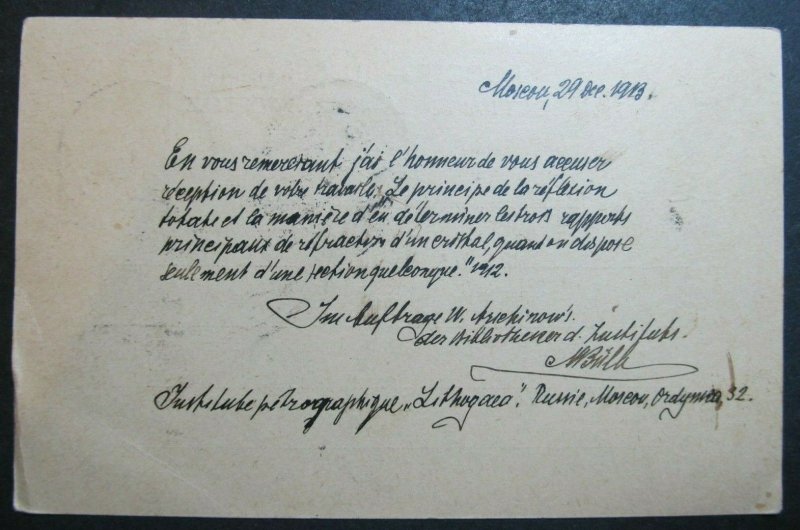 Moscou, 29 Dec. 1913.
En vous remerciant j'ai l'honneur de vous accuser
réception de votre travail: „Le principe de la réflexion
totale et la manière d'en déterminer les trois rapports
principaux de réfraction d'un cristal, quand on dispose
seulement d'une section quelconque." 1912.
Im Auftrage W. Arschinow's
der Bibliothekar d. Instituts.
Institute pétrographique „Lithogaea". Russie, Moscou, Ordynka, 32.